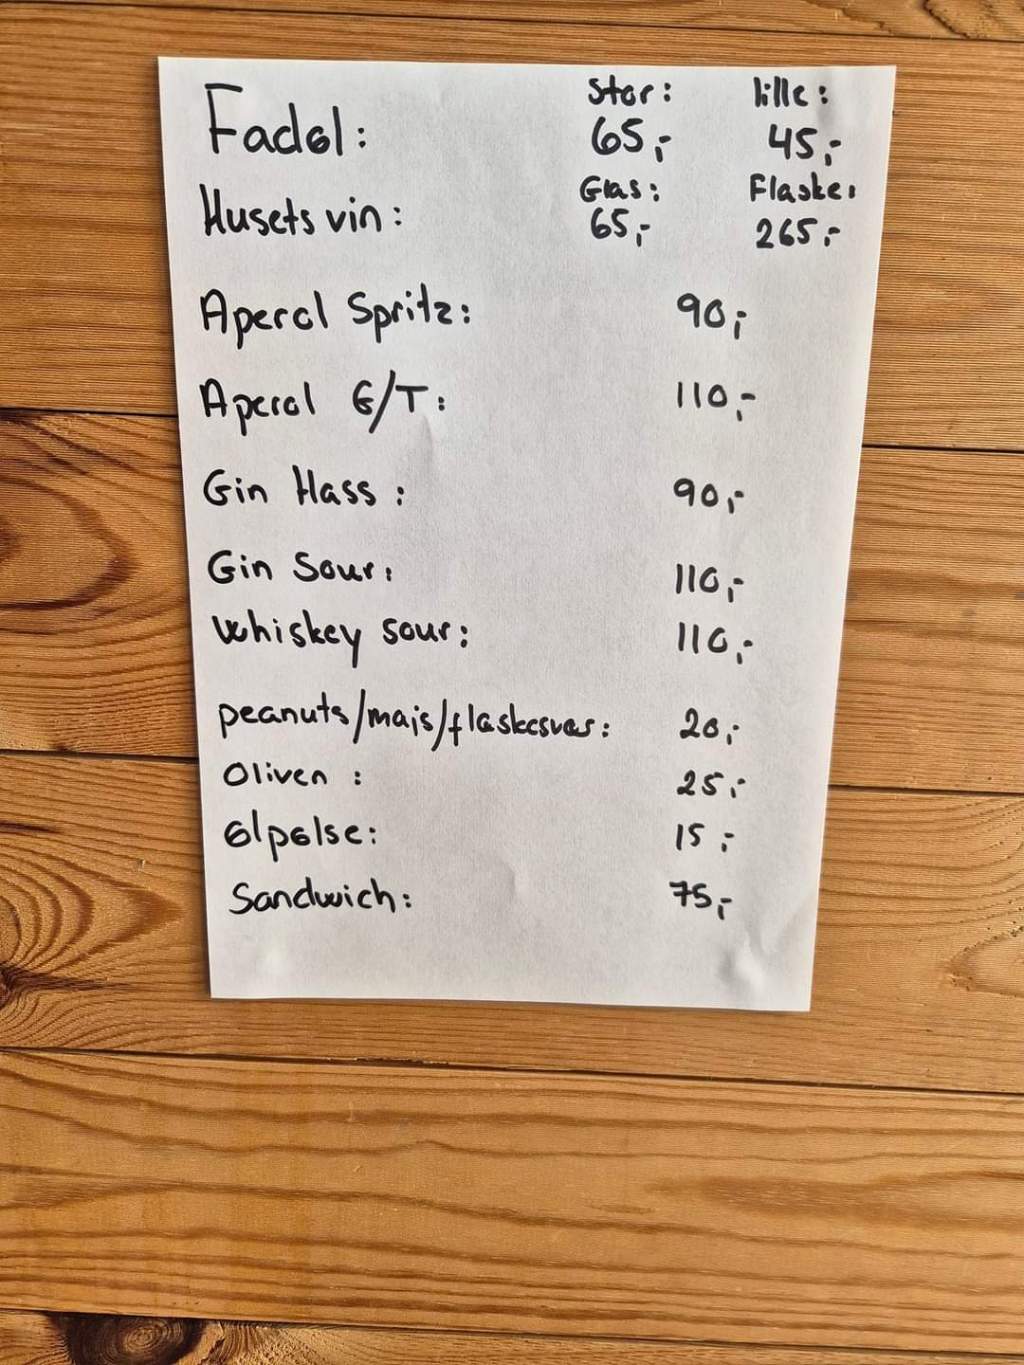 Stor: lille:
Fadøl: 65,- 45,-
Glas: Flaske:
Husets vin: 65,- 265,-
Aperol Spritz: 90,-
Aperol G/T: 110,-
Gin Hass: 90,-
Gin Sour: 110,-
Whiskey sour: 110,-
peanuts/majs/flæskesvær: 20,-
Oliven: 25,-
Ølpølse: 15,-
Sandwich: 75,-